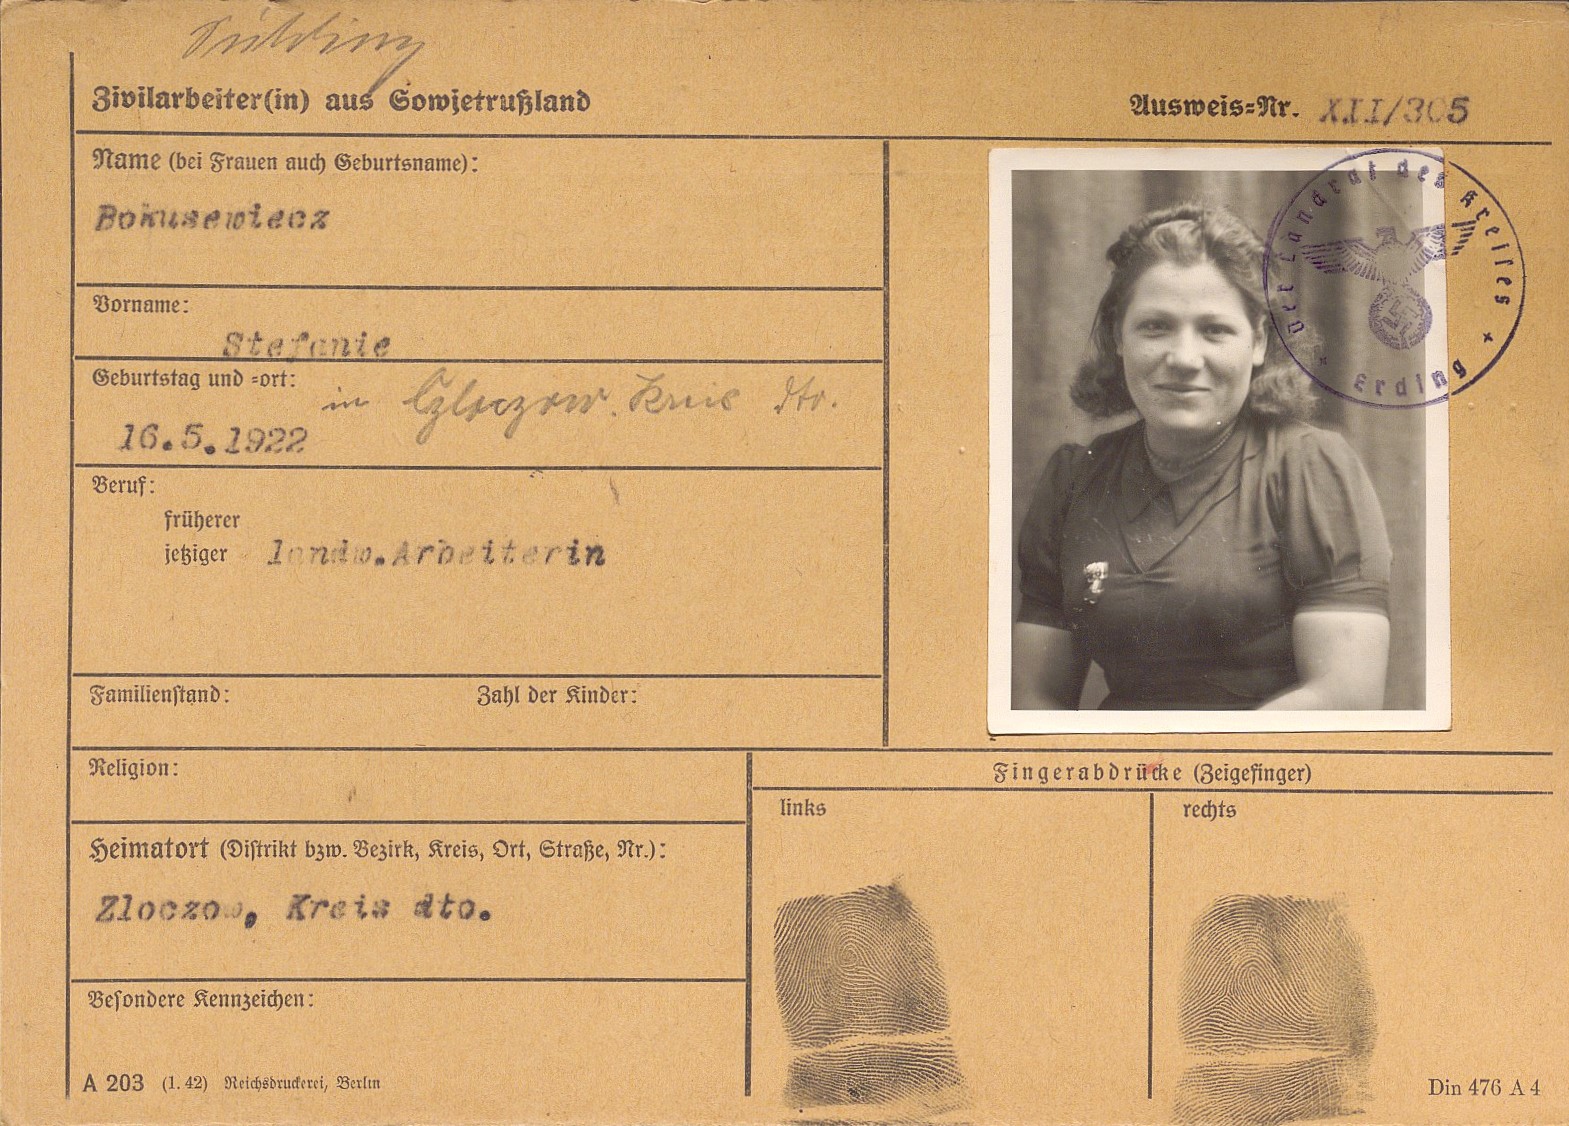 Zivilarbeiter(in) aus Sowjetrußland
Ausweis=Nr. XII/305
Name (bei Frauen auch Geburtsname):
Bokusewiecz
Vorname:
Stefanie
Geburtstag und =ort:
in Kreis dto.
16.5.1922
Beruf:
früherer
jetziger landw.Arbeiterin
Familienstand: Zahl der Kinder:
Religion:
Heimatort (Distrikt bzw. Bezirk, Kreis, Ort, Straße, Nr.):
Zloczow, Kreis dto.
Besondere Kennzeichen:
A 203 (1. 42) Reichsdruckerei, Berlin
Der Landrat des Kreises
Erding
Fingerabdrücke (Zeigefinger)
links rechts
Din 476 A 4